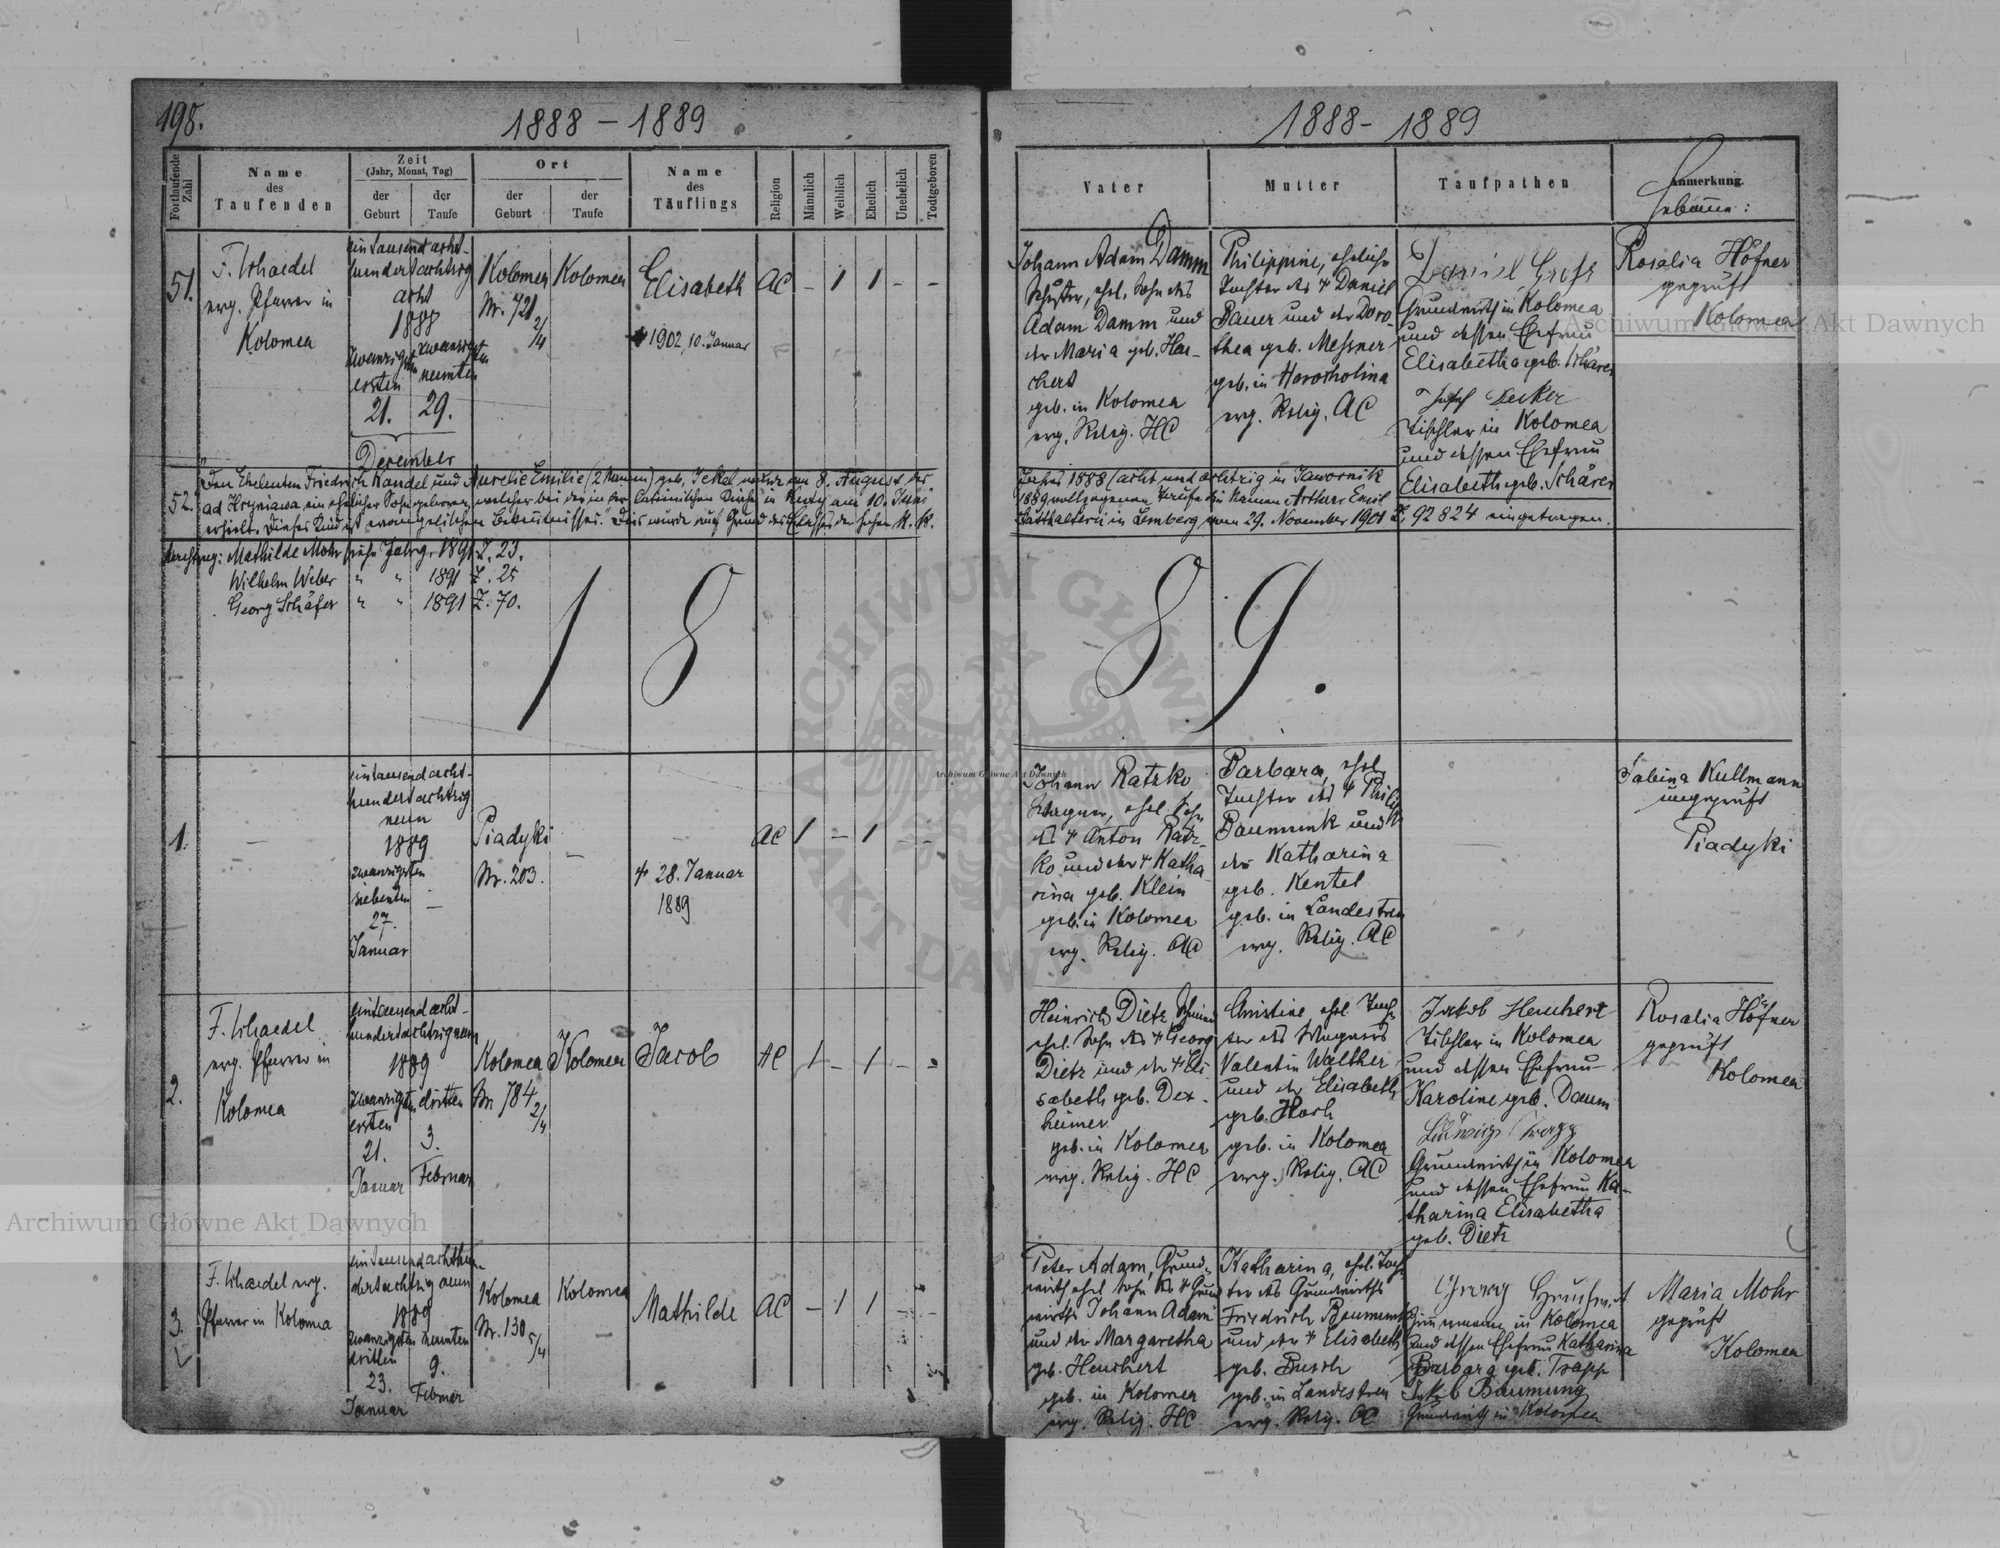 198.
1888 - 1889
Fortlaufende Zahl
Name des Taufenden
Zeit (Jahr, Monat, Tag)
der Geburt
der Taufe
Ort
der Geburt
der Taufe
Name des Täuflings
Religion
Männlich
Weiblich
Ehelich
Unehelich
Todtgeboren
51.
F. Schaedel
evg. Pfarrer in
Kolomea
eintausend acht-
hundert achtzig
acht
1888
zwanzigsten
ersten
21.
zwanzigsten
neunten
29.
December
Kolomea
Nr. 721
2/4
Kolomea
Elisabeth
1902, 10. Januar
AC - 1 1 - -
52.
Den Eheleuten Friedrich Kandel und Aurelie Emilie (2 Namen) geb. Jekel wurde am 8. August des
ad Hryniawa ein ehelicher Sohn geboren, welcher bei der in der lateinischen Kirche in Kuty am 10. Juni
erhielt. Dieses Kind ist evangelischen Bekenntnisses." Dies wurde auf Grund des Erlasses der hohen K. K.
Mathilde Mohr siehe Jahrg. 1891 Z. 23.
Wilhelm Weber " " 1891 Z. 25
Georg Schäfer " " 1891 Z. 70.
1 8
1.
-
eintausend acht-
hundert achtzig
neun
1889
zwanzigsten
siebenten
27.
Januar
-
Piadyki
Nr. 203.
-
-
† 28. Januar
1889
AC 1 - 1 - -
2.
F. Schaedel
evg. Pfarrer in
Kolomea
eintausend acht-
hundert achtzig neun
1889
zwanzigsten
ersten
21.
Januar
dritten
3.
Februar
Kolomea
Nr. 784
2/4
Kolomea
Jacob
HC 1 - 1 - -
3.
F. Schaedel evg.
Pfarrer in Kolomea
eintausend achthun-
dert achtzig neun
1889
zwanzigsten
dritten
23.
Januar
neunten
9.
Februar
Kolomea
Nr. 130
5/4
Kolomea
Mathilde
AC - 1 1 - -
1888 - 1889
Vater
Mutter
Taufpathen
Anmerkung.
Hebamme:
Johann Adam Damm
Schuster, ehel. Sohn des
Adam Damm und
der Maria geb. Har-
chert
geb. in Kolomea
evg. Relig. HC
Philippine, eheliche
Tochter des † Daniel
Bauer und der Doro-
thea geb. Messner
geb. in Horocholina
evg. Relig. AC
Daniel Gross
Grundwirth in Kolomea
und dessen Ehefrau
Elisabetha geb. Schärer
Josef Decker
Tischler in Kolomea
und dessen Ehefrau
Elisabeth geb. Schärer
Rosalia Höfner
geprüft
Kolomea
Jahres 1888 (acht und achtzig in Jawornik
1889 vollzogenen Taufe die Namen Arthur Emil
Statthalterei in Lemberg vom 29. November 1901 Z. 92824 eingetragen.
8 9.
Johann Ratzko
Wagner, ehel. Sohn
des † Anton Ratz-
ko und der † Katha-
rina geb. Klein
geb. in Kolomea
evg. Relig. AC
Barbara, ehel.
Tochter des † Philipp
Baumunk und
der Katharina
geb. Kentel
geb. in Landestreu
evg. Relig. AC
-
Sabina Kullmann
ungeprüft
Piadyki
Heinrich Dietz, Schmied
ehel. Sohn des † Georg
Dietz und der † Eli-
sabeth geb. Dex-
heimer
geb. in Kolomea
evg. Relig. HC
Christine, ehel. Toch-
ter des Wagners
Valentin Walther
und der Elisabeth
geb. Koch
geb. in Kolomea
evg. Relig. AC
Jakob Heuchert
Tischler in Kolomea
und dessen Ehefrau
Karoline geb. Daum
Ludwig
Grundwirth in Kolomea
und dessen Ehefrau Ka-
tharina Elisabetha
geb. Dietz
Rosalia Höfner
geprüft
Kolomea
Peter Adam, Grund-
wirth ehel. Sohn des † Grund
wirths Johann Adam
und der Margaretha
geb. Heuchert
geb. in Kolomea
evg. Relig. HC
Katharina, ehel. Toch-
ter des Grundwirths
Friedrich Baumunk
und der † Elisabeth
geb. Busch
geb. in Landestreu
evg. Relig. AC
Georg
Zimmermann in Kolomea
und dessen Ehefrau Katharina
Barbara geb. Trapp
Jakob Baumung
Grundwirth in Kolomea
Maria Mohr
geprüft
Kolomea
Archiwum Główne Akt Dawnych
Archiwum Główne Akt Dawnych
Archiwum Główne Akt Dawnych
ARCHIWUM GŁÓWNE
AKT DAWNYCH